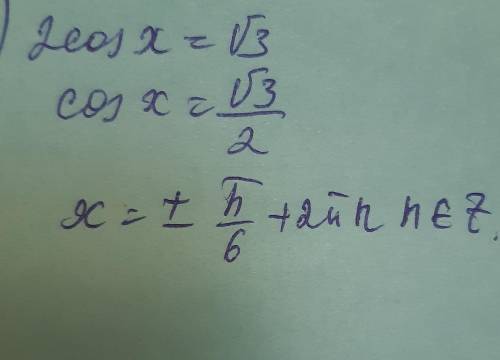 2cos x = √3
cos x = √3/2
x = ± π/6 + 2πn n ∈ Z.